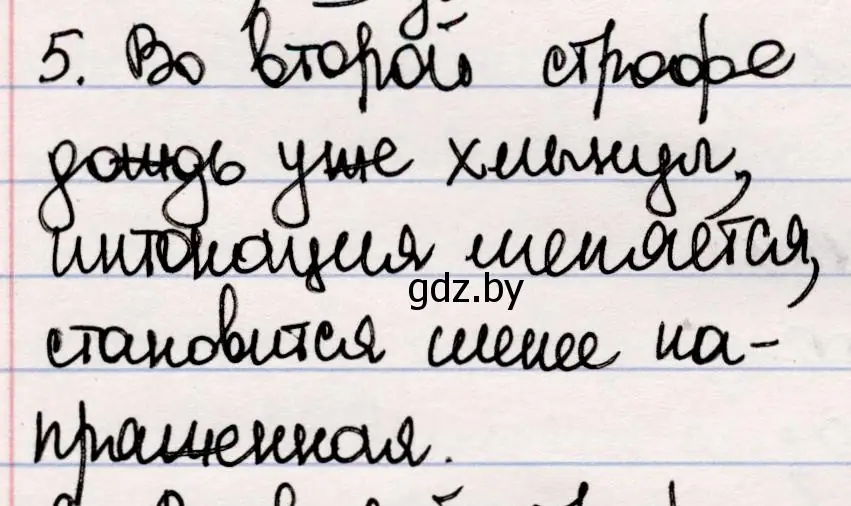 5. Во второй строфе
дождь уже хлынул,
интонация меняется,
gdz.by
становится менее на-
пряженная.